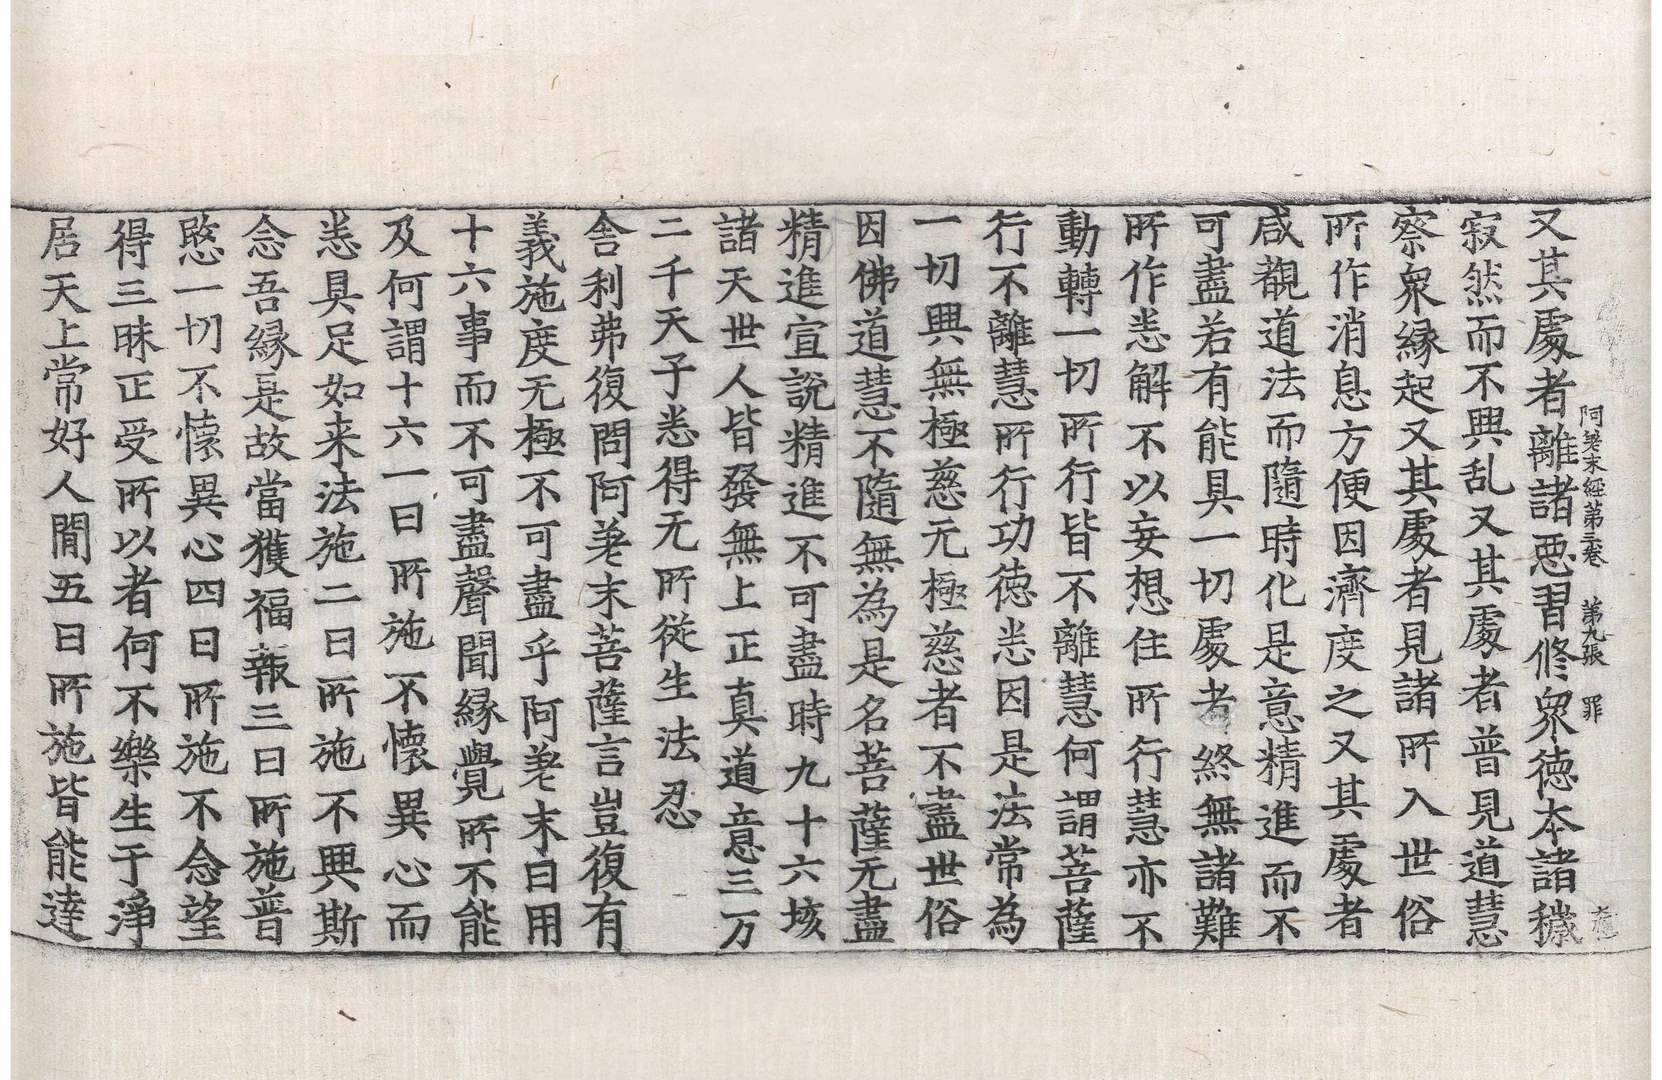 阿差末經第三卷　第九張　罪
又其處者離諸惡習修衆徳本諸穢
寂然而不興乱又其處者普見道慧
察衆縁起又其處者見諸所入世俗
所作消息方便因濟度之又其處者
咸觀道法而隨時化是意精進而不
可盡若有能具一切處者終無諸難
所作悉解不以妄想住所行慧亦不
動轉一切所行皆不離慧何謂菩薩
行不離慧所行功徳悉因是法常為
一切興無極慈无極慈者不盡世俗
因佛道慧不隨無為是名菩薩无盡
精進宣說精進不可盡時九十六垓
諸天世人皆發無上正真道意三万
二千天子悉得无所從生法忍
舍利弗復問阿差末菩薩言豈復有
義施度无極不可盡乎阿差末曰用
十六事而不可盡聲聞縁覺所不能
及何謂十六一曰所施不懷異心而
悉具足如来法施二曰所施不興斯
念吾縁是故當獲福報三曰所施普
愍一切不懷異心四曰所施不念望
得三昧正受所以者何不樂生于淨
居天上常好人閒五曰所施皆能達